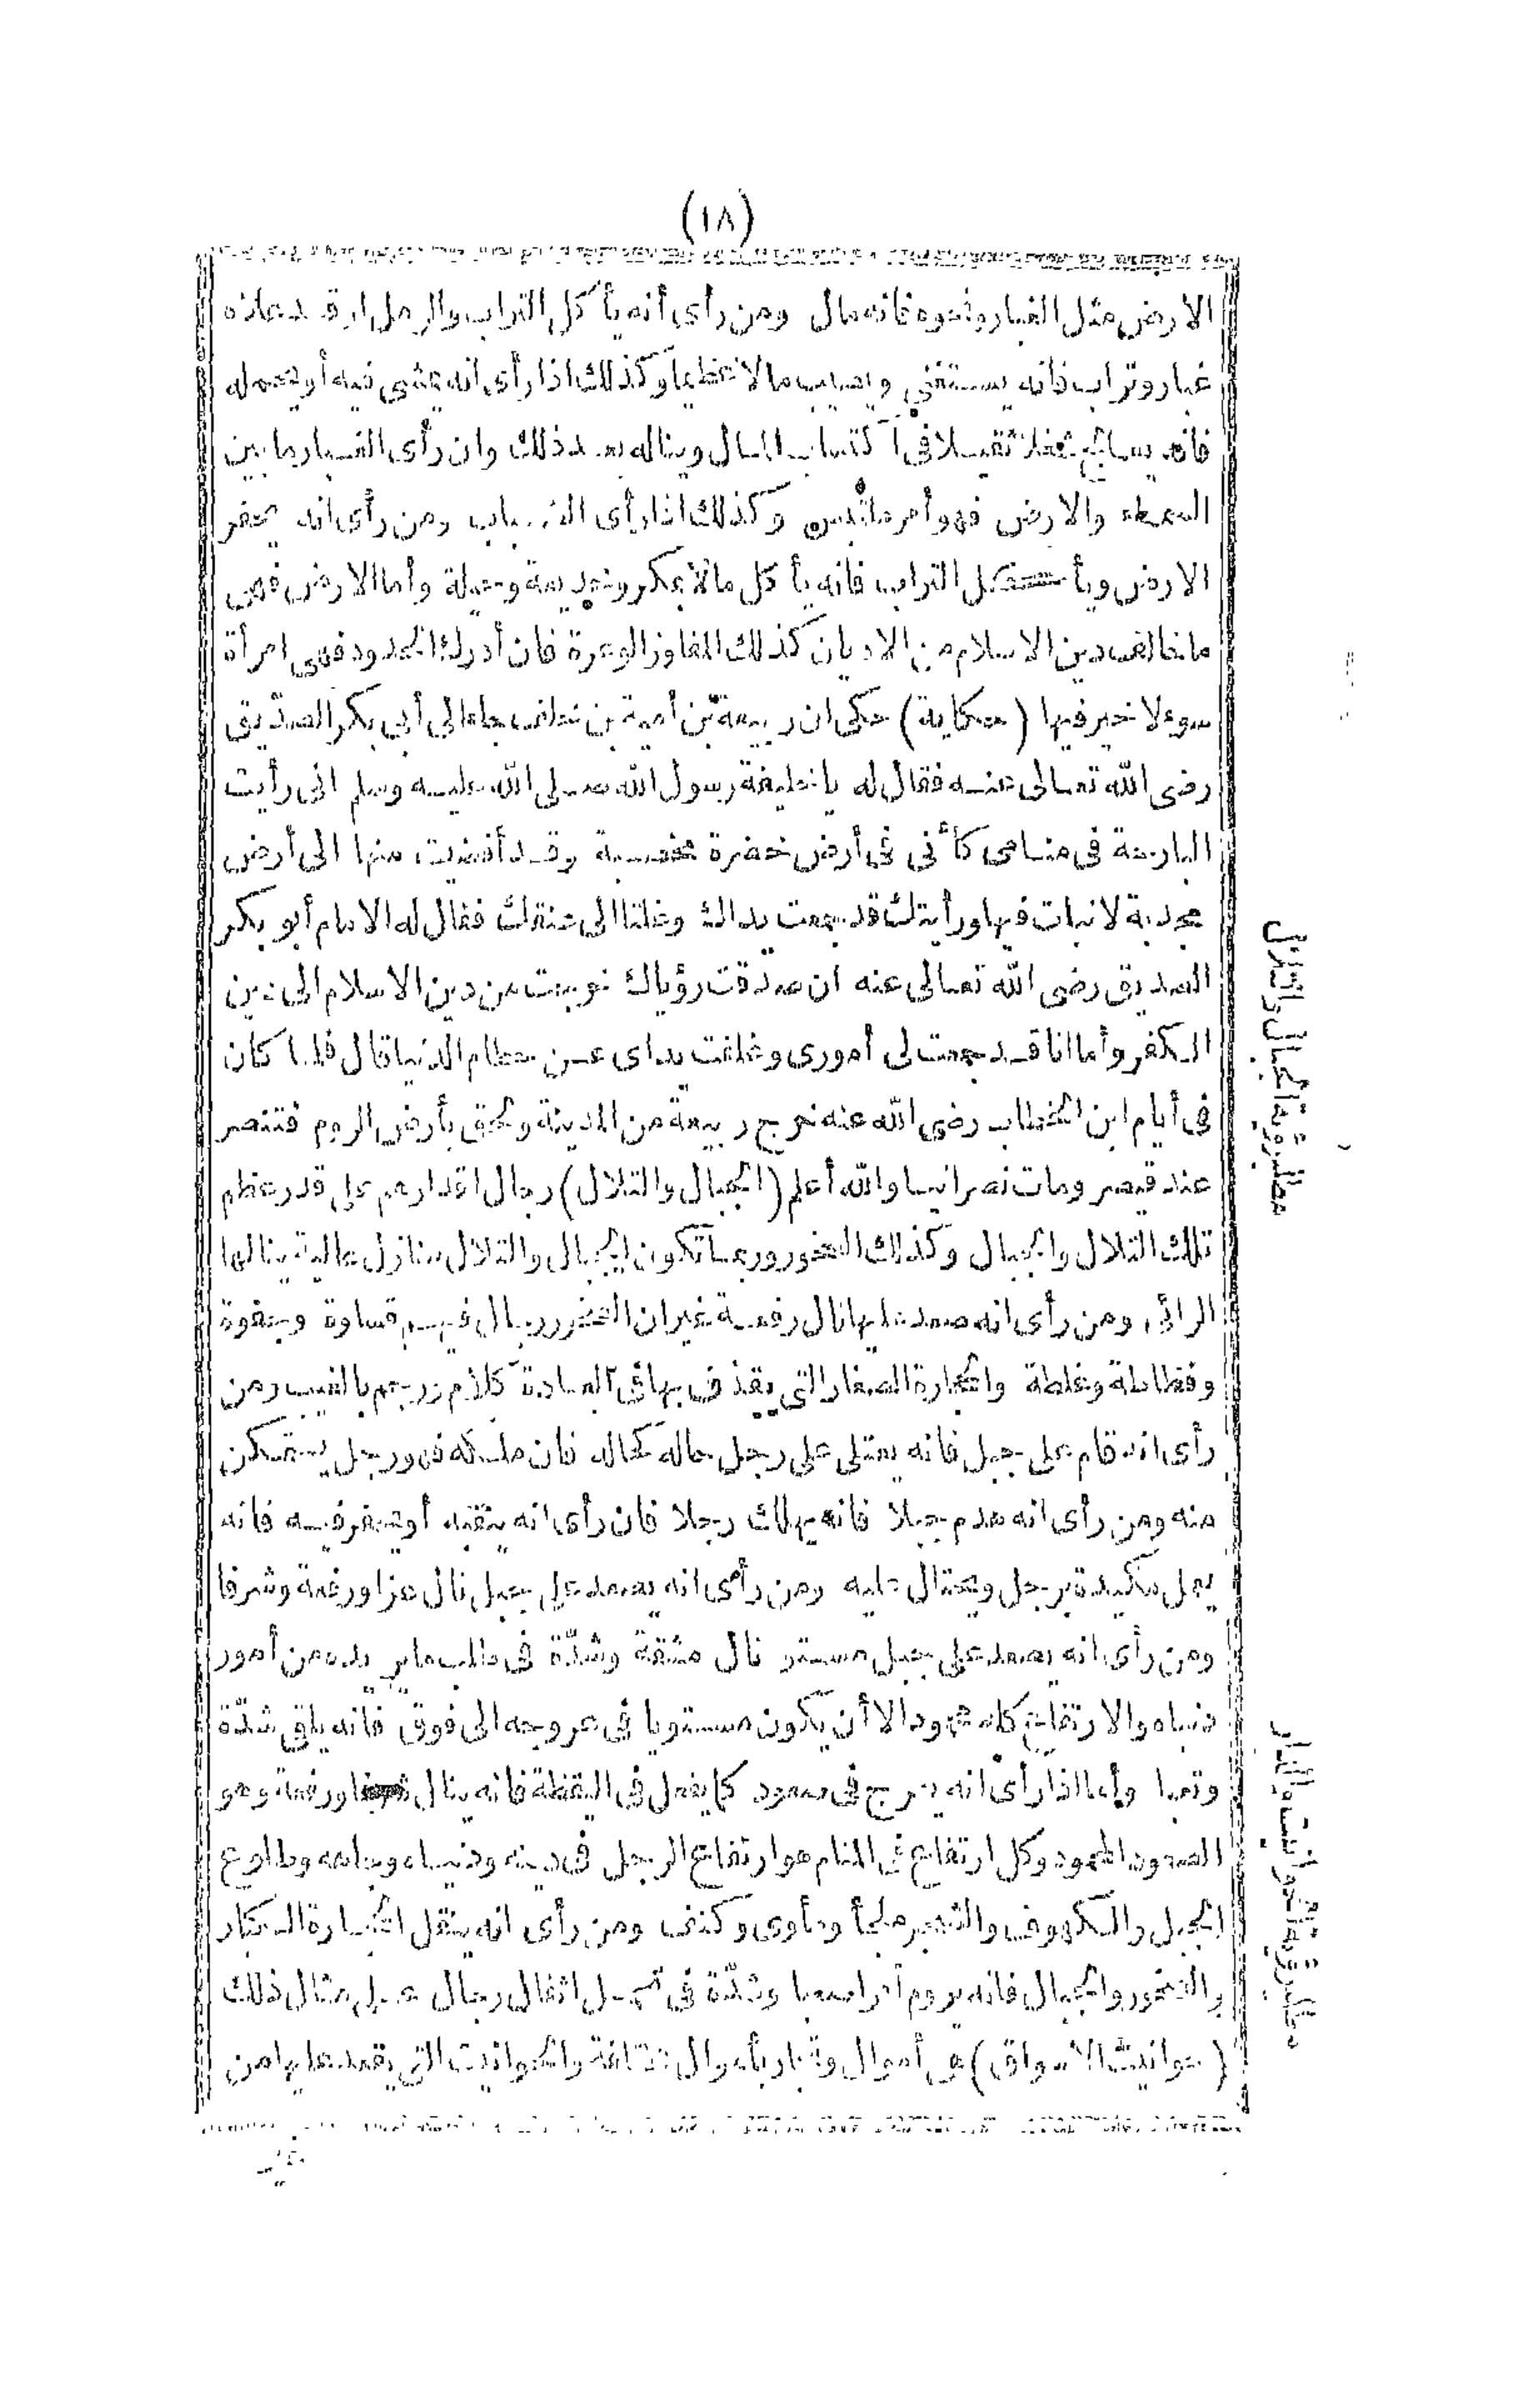 (١٨)
الارض مثل الغبار ونحوه فانه مال ومن رأى أنه يأكل التراب والرمل او قد علاه
غبار وتراب فانه يستغنى ويصيب مالا عظيما وكذلك اذا رأى انه يمشى فيه أو يحمله
فانه يعالج شغلا ثقيلا فى اكتساب المال ويناله بعد ذلك وان رأى الغبار ما بين
السماء والارض فهو أمر ملتبس وكذلك اذا رأى الضباب ومن رأى انه يحفر
الارض ويأكل التراب فانه يأكل مالا بمكر وخديعة وحيلة وأما الارض فهى
ما خالف دين الاسلام من الاديان كذلك المفاوز الوعرة فان أدرك الحدود فهى امرأة
سوء لا خير فيها (حكاية) حكى ان ربيعة بن أمية بن خلف جاء الى أبى بكر الصدّيق
رضى الله تعالى عنه فقال له يا خليفة رسول الله صلى الله عليه وسلم انى رأيت
البارحة فى منامى كأنى فى أرض خضرة مخصبة وقد أفضيت منها الى أرض
مجدبة لا نبات فيها ورأيتك قد جمعت يداك وغلتا الى عنقك فقال له الامام أبو بكر
الصديق رضى الله تعالى عنه ان صدقت رؤياك خرجت من دين الاسلام الى دين
الكفر وأما انا قد جمعت لى أمورى وغلقت يداى عن حطام الدنيا قال فلما كان
فى أيام ابن الخطاب رضى الله عنه خرج ربيعة من المدينة ولحق بأرض الروم فتنصر
عند قيصر ومات نصرانيا والله أعلم (الجبال والتلال) رجال اقدارهم على قدر عظم
تلك التلال والجبال وكذلك الصخور وربما تكون الجبال والتلال منازل عالية ينالها
الرائى ومن رأى انه صعد عليها نال رفعة غير ان الصخور رجال فيهم قساوة وجفوة
وفظاظة وغلظة والحجارة الصغار التى يقذف بها فى العادة كلام ورجم بالغيب ومن
رأى انه قام على جبل فانه يعتلى على رجل حاله كحاله فان ملكه فهو رجل يتمكن
منه ومن رأى انه هدم جبلا فانه يهلك رجلا فان رأى انه ينقبه أو يحفر فيه فانه
يعمل مكيدة برجل ويحتال عليه ومن رأى انه يصعد على جبل نال عزا ورفعة وشرفا
ومن رأى انه يصعد على جبل مستو نال مشقة وشدّة فى طلب ما يريده من أمور
دنياه والارتفاع كله محمود الا أن يكون مستويا فى عروجه الى فوق فانه يلقى شدّة
وتعبا وأما اذا رأى انه يعرج فى صعود كما يفعل فى اليقظة فانه ينال شرفا ورفعة وهو
الصعود المحمود وكل ارتفاع فى المنام هو ارتفاع الرجل فى دينه ودنياه وجاهه وطلوع
الجبل والكهوف والشجر ملجأ ومأوى وكنف ومن رأى انه ينقل الحجارة الكبار
والصخور والجبال فانه يروم أمرا صعبا وشدّة فى تحمل اثقال رجال على مثال ذلك
(حوانيت الاسواق) هى أموال وتجار بأموال والحوانيت التى يقعد عليها من
مطلب رؤية الجبال والتلال
مطلب رؤية الحوانيت والدار